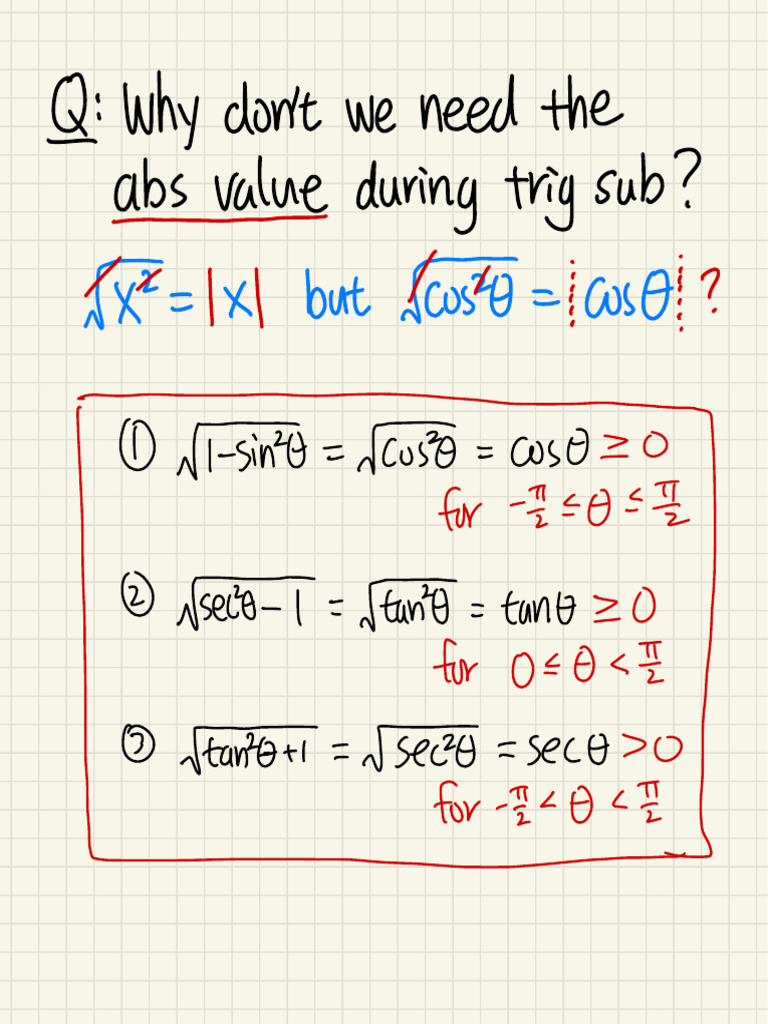 Q: Why don't we need the
abs value during trig sub?
√x² = |x| but √cos²θ = ¦cosθ¦ ?
① √1-sin²θ = √cos²θ = cosθ ≥ 0
for -π/2 ≤ θ ≤ π/2
② √sec²θ - 1 = √tan²θ = tanθ ≥ 0
for 0 ≤ θ < π/2
③ √tan²θ+1 = √sec²θ = secθ > 0
for -π/2 < θ < π/2